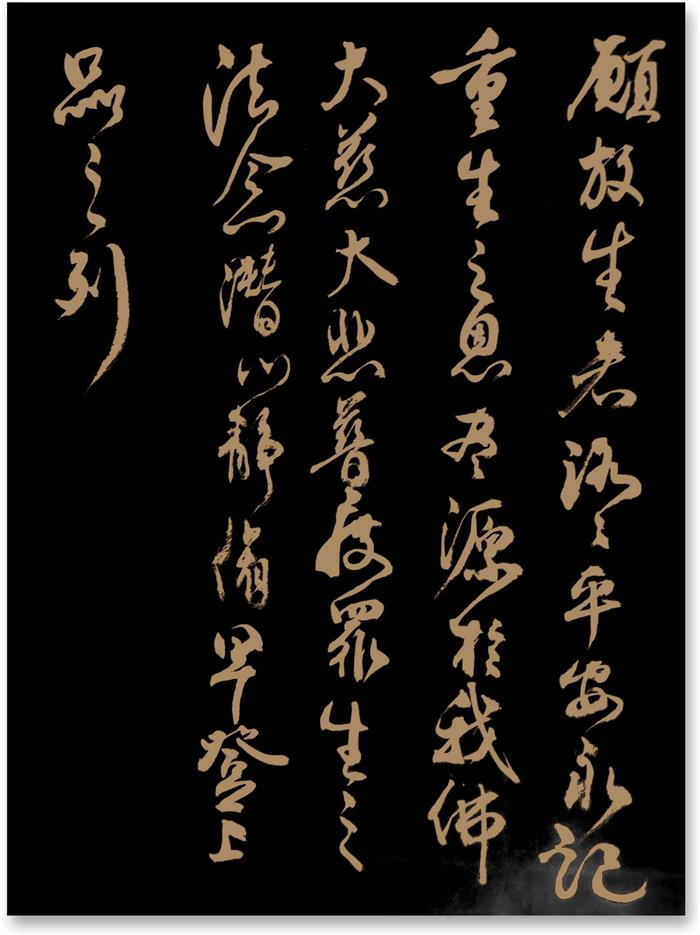 願放生者路々平安永記
重生之恩尽源於我佛
大慈大悲普度眾生之
法念潜心静修早登上
品之列